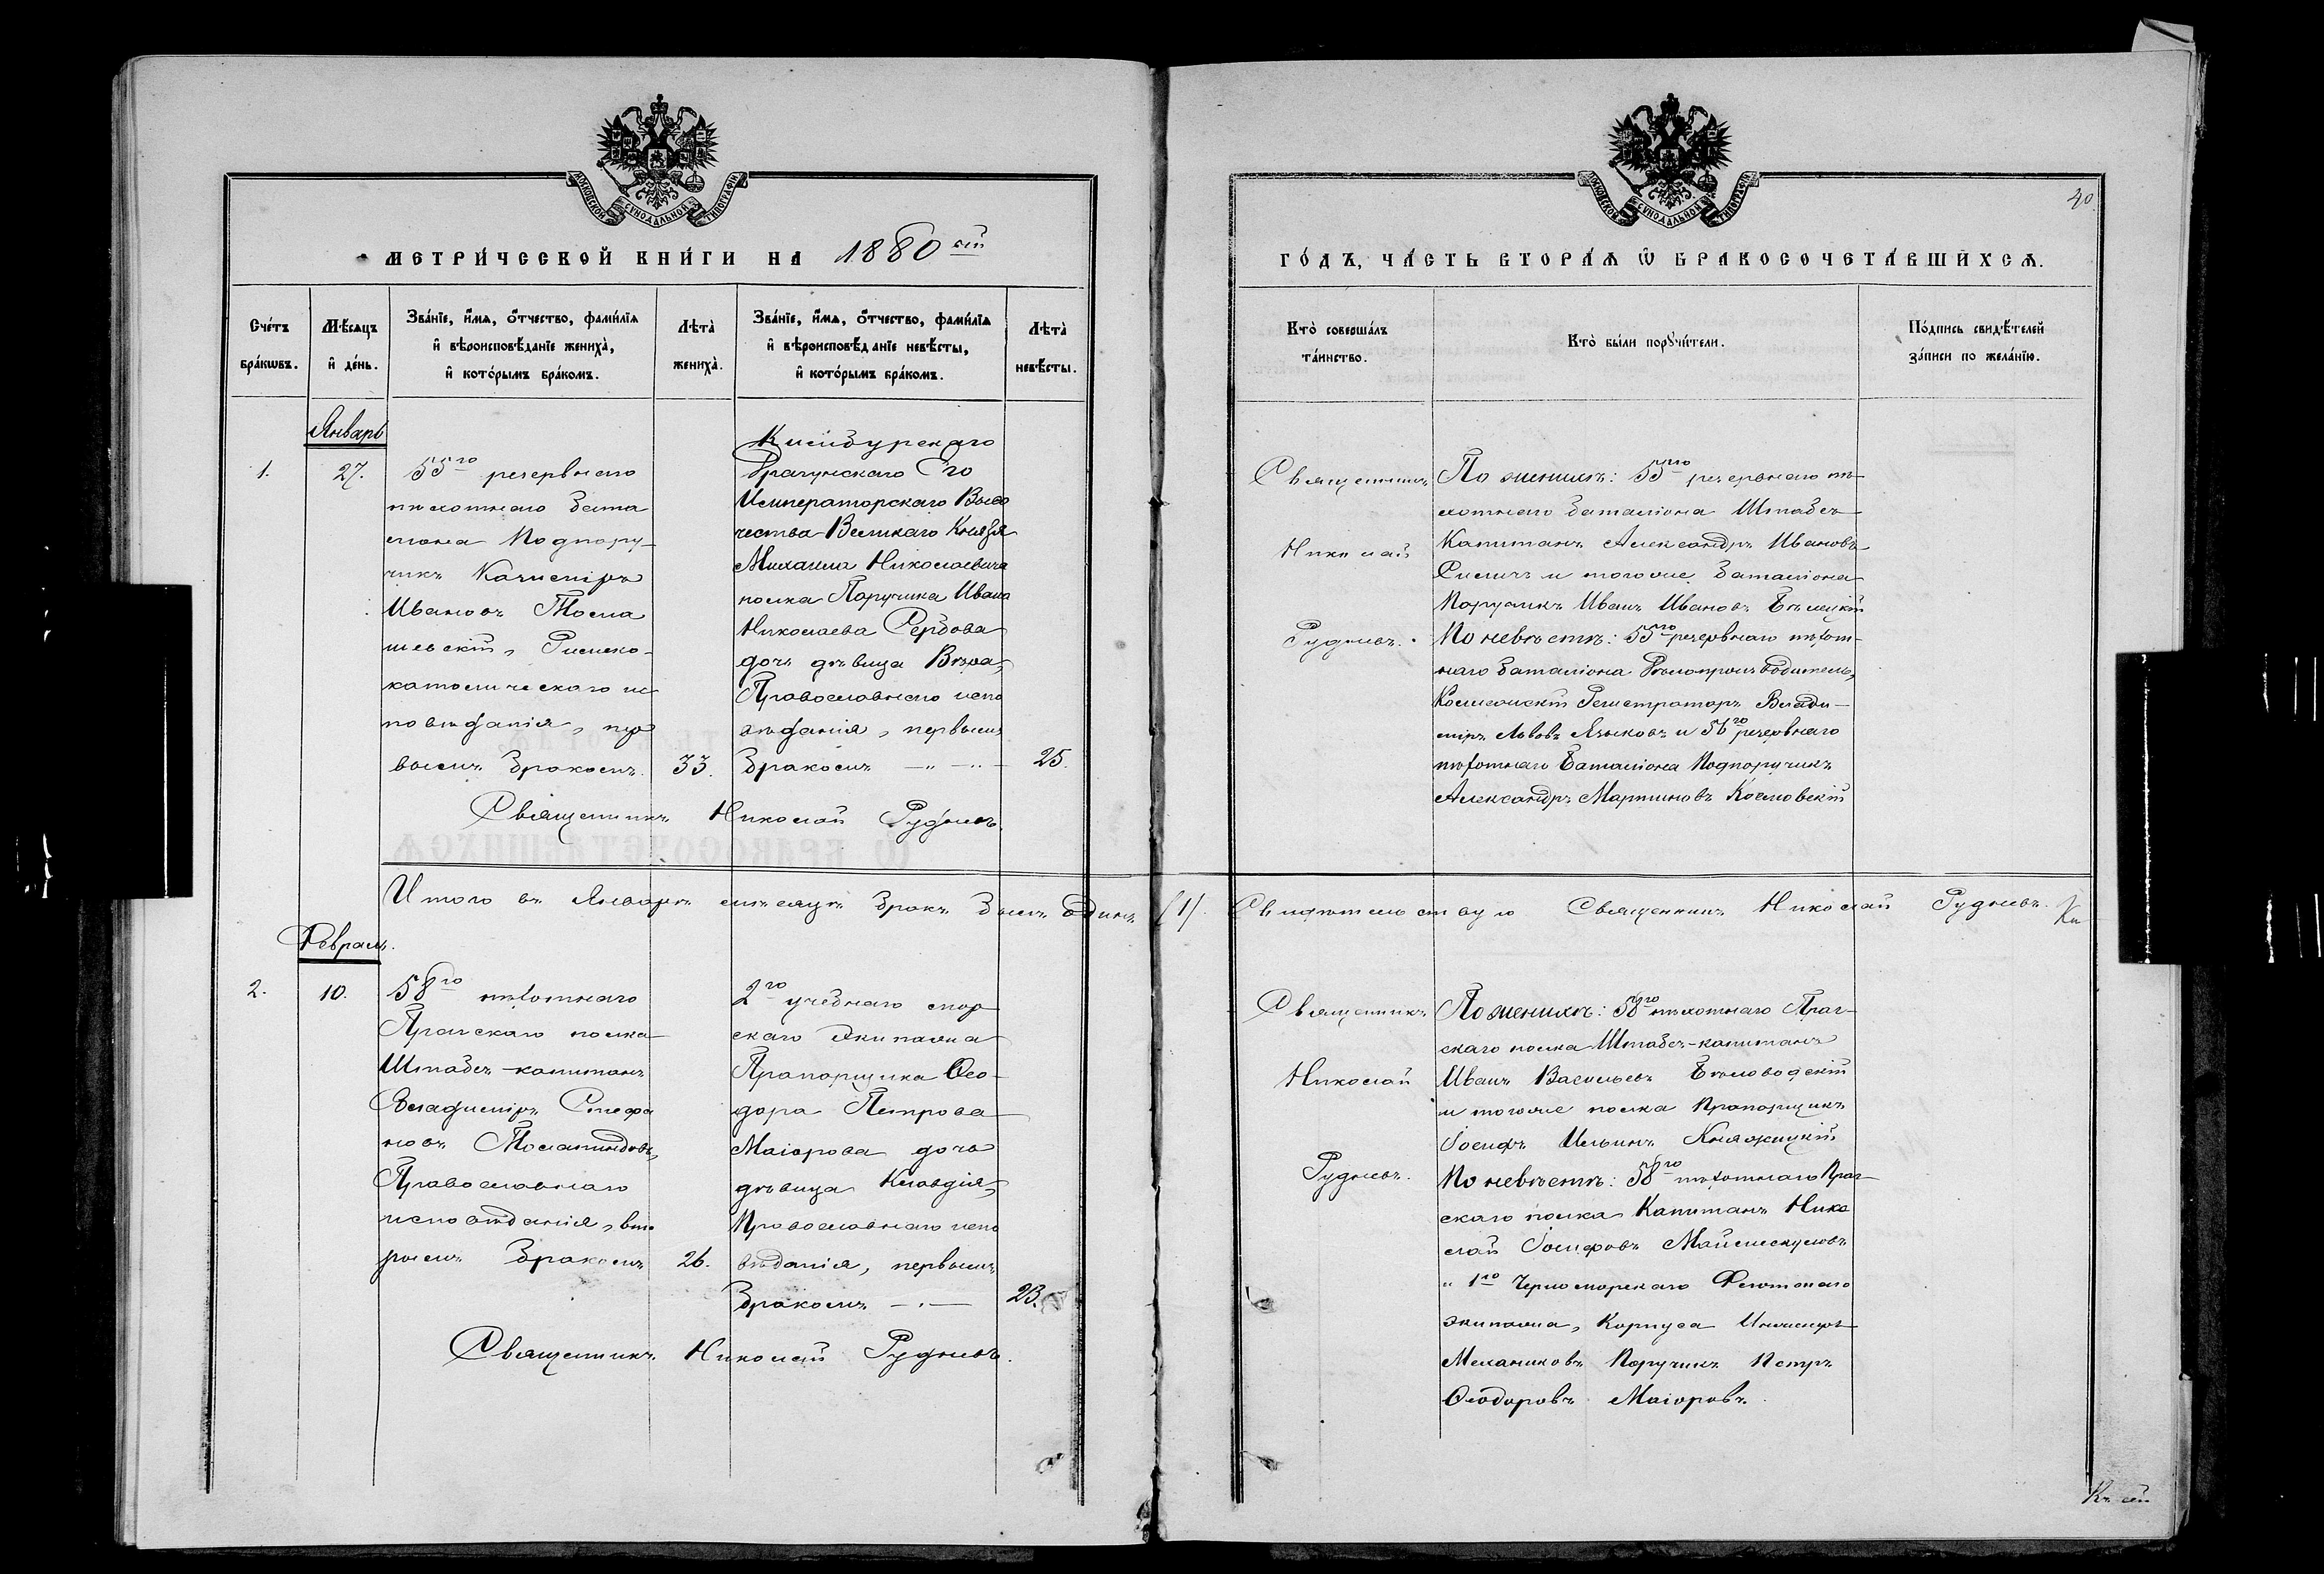 МОСКОВСКОЙ СѴНОДАЛЬНОЙ ТИПОГРАФІИ
МЕТРИ́ЧЕСКОЙ КНИ́ГИ НА 1880 ый
Сче́тъ бра́кωвъ.
Мѣ́сяцъ и҆ де́нь.
Зва́нїе, и҆́мѧ, ѻ҆́тчество, фами́лїѧ
и҆ вѣроисповѣ́данїе жениха̀,
и҆ кото́рымъ бра́комъ.
Лѣта̀ жениха̀.
Зва́нїе, и҆́мѧ, ѻ҆́тчество, фами́лїѧ
и҆ вѣроисповѣ́данїе невѣ́сты,
и҆ кото́рымъ бра́комъ.
Лѣта̀ невѣ́сты.
Январь
1.
27.
55го резервнаго
пѣхотнаго бата
ліона Подпору-
чикъ Казиміръ
Ивановъ
шевскій, Римско-
католическаго ис
повѣданія, пер
вымъ бракомъ.
33.
Драгунскаго Его
Императорскаго Высо
чества Великаго Князя
Михаила Николаевича
полка Поручика Ивана
Николаева Сербова
дочь дѣвица Вѣра,
Православнаго испо
вѣданія, первымъ
бракомъ — „ — „ —
25.
Священникъ Николай Рудневъ.
Итого въ Январѣ мѣсяцѣ бракъ былъ одинъ (1).
Февраль.
2.
10.
58го пѣхотнаго
Прагскаго полка
Штабсъ-капитанъ
Владиміръ Стефа
новъ
Православнаго
исповѣданія, вто
рымъ бракомъ
26.
2го учебнаго мор
скаго экипажа
Прапорщика Ѳео-
дора Петрова
Маіорова дочь
дѣвица Клавдія,
Православнаго испо
вѣданія, первымъ
бракомъ — „ —
23.
Священникъ Николай Рудневъ.
МОСКОВСКОЙ СѴНОДАЛЬНОЙ ТИПОГРАФІИ
40
ГО́ДЪ, ЧА́СТЬ ВТОРА́Ѧ Ѡ҆ БРАКОСОЧЕТА́ВШИХСѦ.
Кто̀ соверша́лъ та́инство.
Кто̀ бы́ли порꙋчи́тели.
По́дпись свидѣ́телей за́писи по жела́нїю.
Священникъ
Николай
Рудневъ.
По женихѣ: 55го резервнаго пѣ-
хотнаго баталіона Штабсъ-
Капитанъ Александръ Ивановъ
и того же баталіона
Поручикъ Иванъ Ивановъ Бѣлецкій
По невѣстѣ: 55го резервнаго пѣхот-
наго баталіона Дѣлопроизводитель,
Коллежскій Регистраторъ Влади-
міръ Львовъ Языковъ и 56го резервнаго
пѣхотнаго Баталіона Подпоручикъ
Александръ Мартиновъ Козловскій
Свидѣтельствую Священникъ Николай Рудневъ.
Священникъ
Николай
Рудневъ.
По женихѣ: 58го пѣхотнаго Праг-
скаго полка Штабсъ-капитанъ
Иванъ Васильевъ Бѣловодскій
и того же полка Прапорщикъ
Іосифъ Ильинъ Княжицкій
По невѣстѣ: 58го пѣхотнаго Праг-
скаго полка Капитанъ Нико
лай Іосифовъ
и 1го Черноморскаго Флотскаго
экипажа, Корпуса Инженеръ
Механиковъ Поручикъ Петръ
Ѳеодоровъ Маіоровъ.